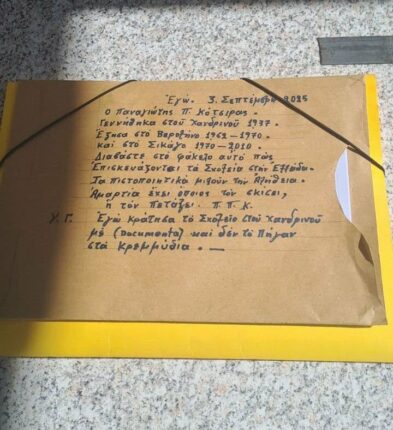 Ἐγώ. 3. Σεπτέμβρη. 2025
ο Παναγιώτης Π. Κότσιρας.
Γεννήθηκα στοῦ Χανδρινοῦ 1937.
Ἔζησα στό Βεροξήνο 1962-1970.
καί στό Σικάγο 1970-2010.
Διαβάστε στό φάκελο αὐτό πως
Ἐπισκευάζονται τά Σχολεία στήν Ἑλλάδα.
Τα πιστοποιητικά μιλοῦν τήν Ἀλήθεια.
Ἁμαρτία ἔχει ὅποιος τόν σκίσει,
ἤ τόν πετάξει. Π. Π. Κ.
Υ. Γ. Ἐγώ κράτησα τό Σχολείο στοῦ Χανδρινοῦ
μέ (Documenta) καί δέν τό Πῆγαν
στά κρεμμύδια. —